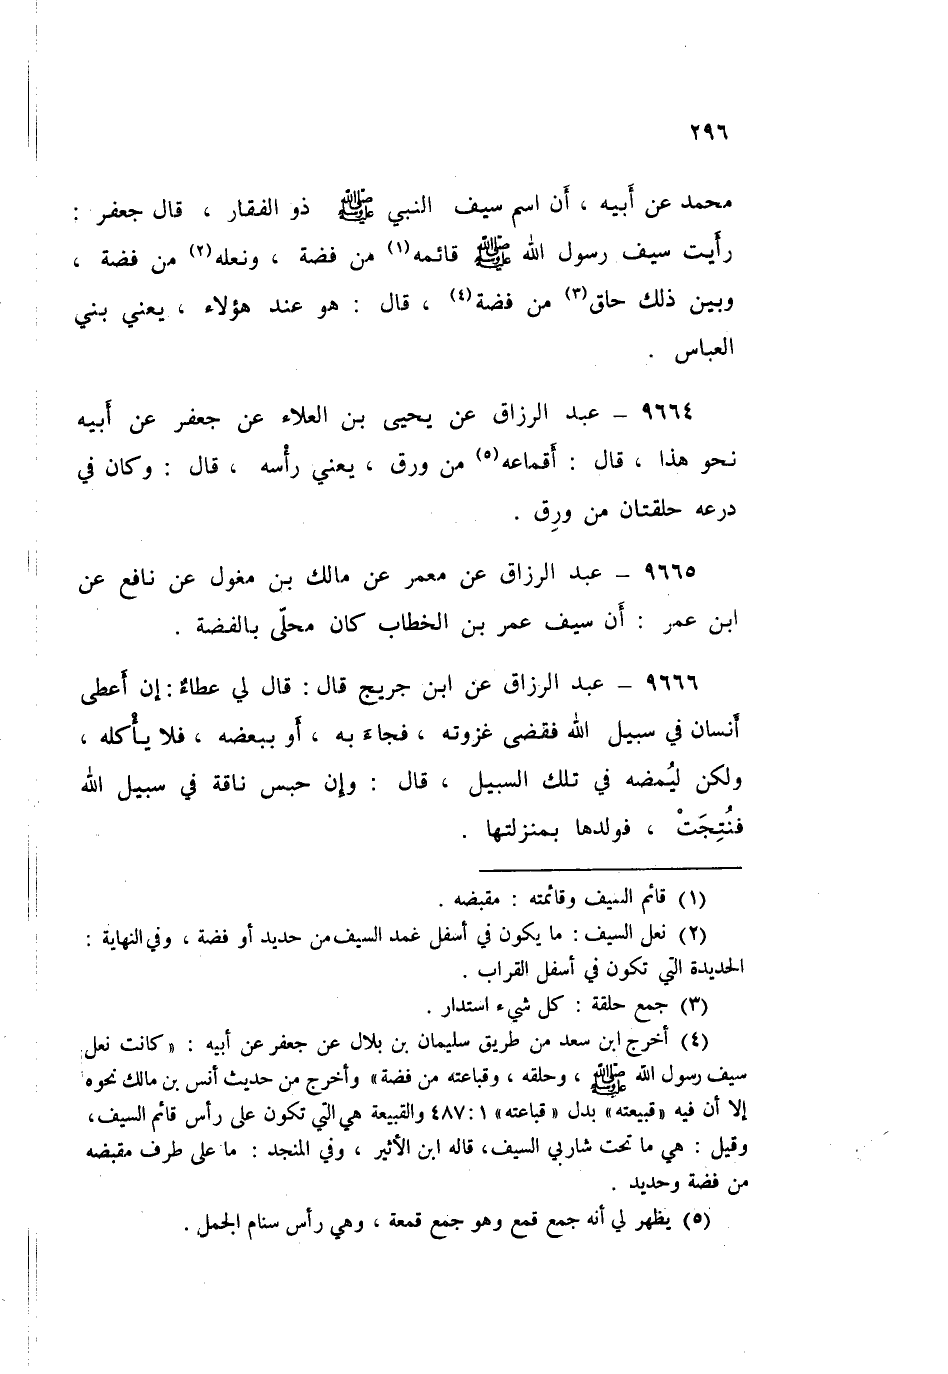 ٢٩٦
محمد عن أبيه ، أَن اسم سيف النبي ﷺ ذو الفقار ، قال جعفر :
رأَيت سيف رسول الله ﷺ قائمه(١) من فضة ، ونعله(٢) من فضة ،
وبين ذلك حلق(٣) من فضة(٤) ، قال : هو عند هؤلاء ، يعني بني
العباس .
٩٦٦٤ – عبد الرزاق عن يحيى بن العلاء عن جعفر عن أَبيه
نحو هذا ، قال : أَقماعه(٥) من ورق ، يعني رأْسه ، قال : وكان في
درعه حلقتان من ورِق .
٩٦٦٥ – عبد الرزاق عن معمر عن مالك بن مغول عن نافع عن
ابن عمر : أَن سيف عمر بن الخطاب كان محلّى بالفضة .
٩٦٦٦ – عبد الرزاق عن ابن جريج قال : قال لي عطاءٌ : إن أَعطى
أَنسان في سبيل الله فقضى غزوته ، فجاءَ به ، أَو ببعضه ، فلا يأْكله ،
ولكن ليُمضه في تلك السبيل ، قال : وإن حبس ناقة في سبيل الله
فنُتِجَتْ ، فولدها بمنزلتها .
(١) قائم السيف وقائمته : مقبضه .
(٢) نعل السيف : ما يكون في أسفل غمد السيف من حديد أو فضة ، وفي النهاية :
الحديدة التي تكون في أسفل القراب .
(٣) جمع حلقة : كل شيء استدار .
(٤) أخرج ابن سعد من طريق سليمان بن بلال عن جعفر عن أبيه : « كانت نعل
سيف رسول الله ﷺ ، وحلقه ، وقباعته من فضة» وأخرج من حديث أنس بن مالك نحوه
إلا أن فيه «قبيعته» بدل «قباعته» ١ : ٤٨٧ والقبيعة هي التي تكون على رأس قائم السيف ،
وقيل : هي ما تحت شاربي السيف، قاله ابن الأثير ، وفي المنجد : ما على طرف مقبضه
من فضة وحديد .
(٥) يظهر لي أنه جمع قمع وهو جمع قمعة ، وهي رأس سنام الجمل .